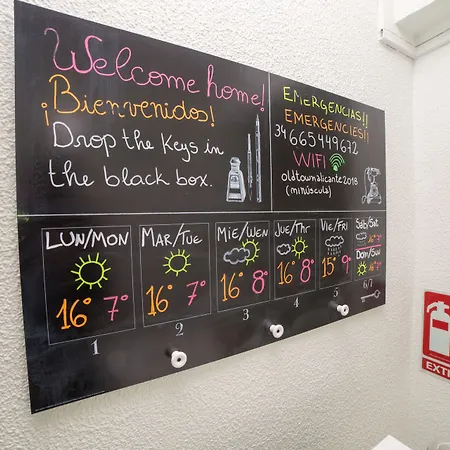 Welcome home!
¡Bienvenidos!
Drop the keys in
the black box.
EMERGENCIAS!!
EMERGENCIES!!
34 665449672
WIFI
oldtownalicante2018
(minúscula)
LUN/MON
16° 7°
1
MAR/TUE
16° 7°
2
MIE/WEN
16° 8°
3
JUE/THR
16° 8°
4
VIE/FRI
15° 9°
5
SÁB/SAT.
16° 7°
DOM/SUN
16° 7°
6/7
EXTI